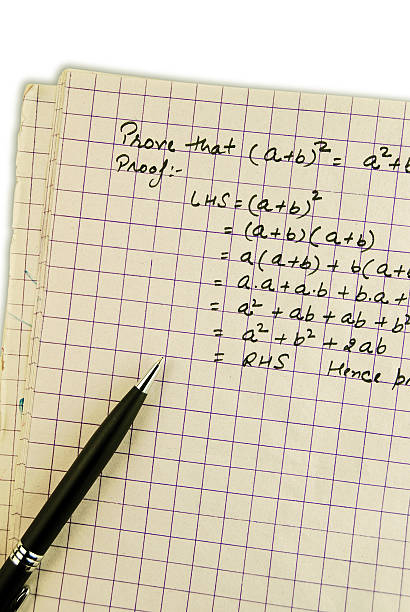 Prove that (a+b)² = a²+b
Proof:-
LHS = (a+b)²
= (a+b)(a+b)
= a(a+b) + b(a+b
= a.a+a.b + b.a +
= a² + ab + ab + b²
= a² + b² + 2ab
= RHS Hence pr